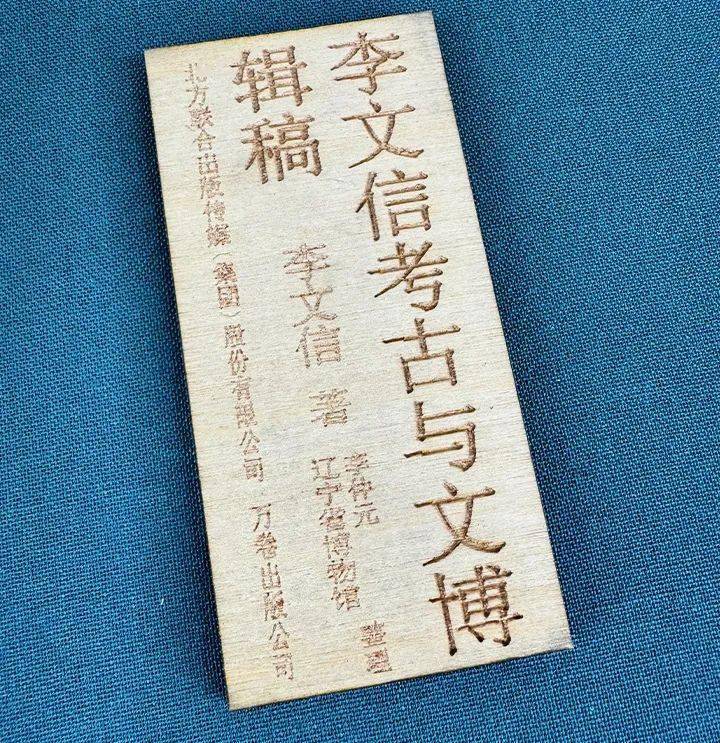 李文信考古与文博
辑稿
李文信 著
李仲元
辽宁省博物馆 整理
北方联合出版传媒（集团）股份有限公司 万卷出版公司